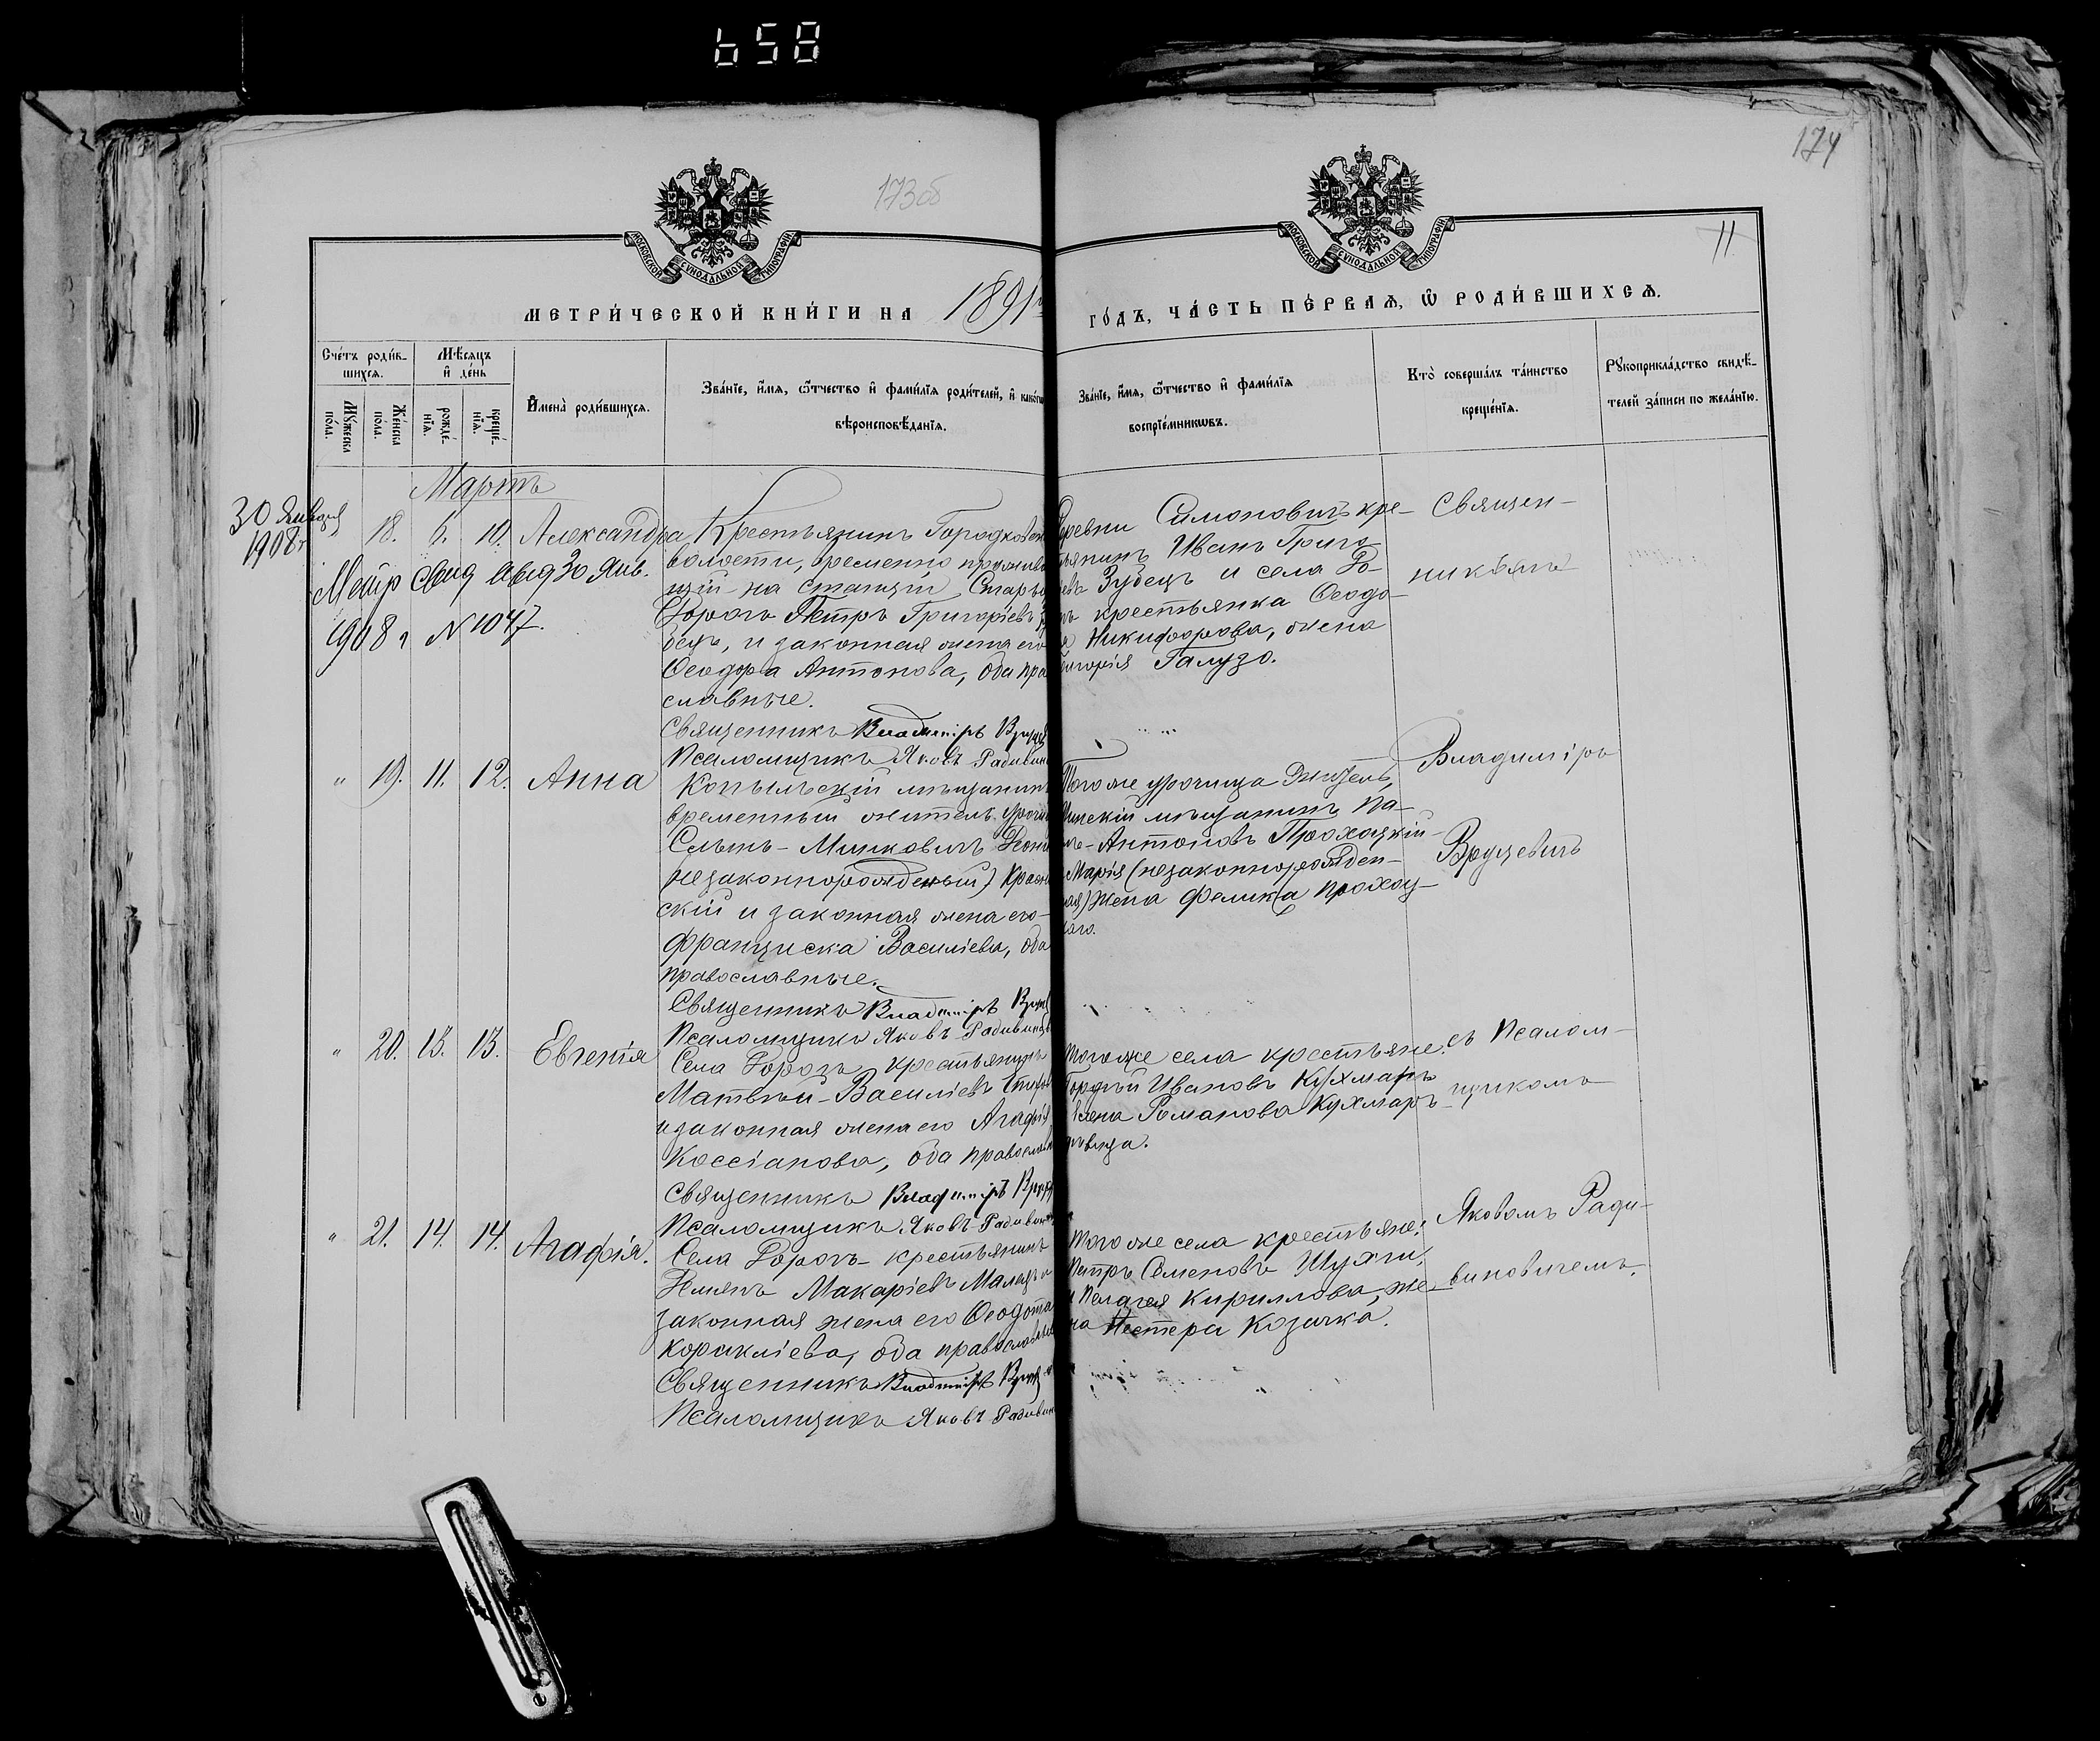 658
173об
174
11
МОСКОВСКОЙ СѴНОДАЛЬНОЙ ТИПОГРАФІИ
МОСКОВСКОЙ СѴНОДАЛЬНОЙ ТИПОГРАФІИ
МЕТРИ́ЧЕСКОЙ КНИ́ГИ НА 1891й
ГО́ДЪ, ЧА́СТЬ ПЕ́РВАѦ, Ѡ҆ РОДИ́ВШИХСѦ.
Сче́тъ роди́в-
шихсѧ.
Мѣ́сѧцъ
и҆ де́нь
Мꙋ́жеска
по́ла.
Же́нска
по́ла.
рожде́-
нїѧ.
креще́-
нїѧ.
И҆мена̀ роди́вшихсѧ.
Зва́нїе, и҆́мѧ, ѻ҆́тчество и҆ фами́лїѧ роди́телей, и҆ како́гѡ
вѣроисповѣ́данїѧ.
Зва́нїе, и҆́мѧ, ѻ҆́тчество и҆ фами́лїѧ
воспрїе́мникѡвъ.
Кто̀ соверша́лъ та́инство
креще́нїѧ.
Рꙋкоприкла́дство свидѣ́-
телей за́писи по жела́нїю.
Мартъ
30 Января
1908 г
Метр свид выд 30 Янв.
1908 г N 1047.
" 18. 6. 10. Александра
Крестьянинъ Городков
волости, временно прожива
щій на станціи Стары
Дороги Петръ Григоріевъ
бецъ, и законная жена его
Ѳеодора Антонова, оба пра
славные.
Священникъ Владиміръ
Псаломщикъ Яковъ Радивин
деревни Симоновичъ кре-
тьянинъ Иванъ Григо
евъ Зубецъ и села До-
гъ крестьянка Ѳеодо-
а Никифорова, жена
игорія Галузо.
Священ-
никъ
" 19. 11. 12. Анна
Копыльскій мѣщанинъ
временный житель уроч
Сельть-Мишковичъ Леон
(незаконнорожденный) Крас
скій и законная жена его
Франциска Василіева, оба
православные.
Священникъ Владиміръ
Псаломщикъ Яковъ Радивинов
Того же урочища житель,
Минскій мѣщанинъ Па-
лъ-Антоновъ Прохоцкій
Марія (незаконнорожден-
ая) жена Феликса Прохоц-
каго.
Владиміръ
Вруцевичъ
" 20. 13. 13. Евгенія
Села Дорогъ крестьянинъ
Матвѣй-Василіевъ
и законная жена его Агафія
Кассіанова, оба православн
Священникъ Владиміръ
Псаломщикъ Яковъ Радивинов
Того же села крестьяне:
Гордѣй Ивановъ Кухмаръ
Елена Романова Кухмаръ
вдовица.
съ Псалом-
щикомъ
" 21. 14. 14. Агафія.
Села Дорогъ крестьянинъ
Деміянъ Макаріевъ Малац и
законная жена его Ѳеодота
Ираклієва, оба православны
Священникъ Владиміръ
Псаломщикъ Яковъ Радивин
Того же села крестьяне:
Петръ Семеновъ Шухн,
и Пелагея Кириллова, же-
на Нестера Козачка.
Яковомъ Ради-
виновичемъ.